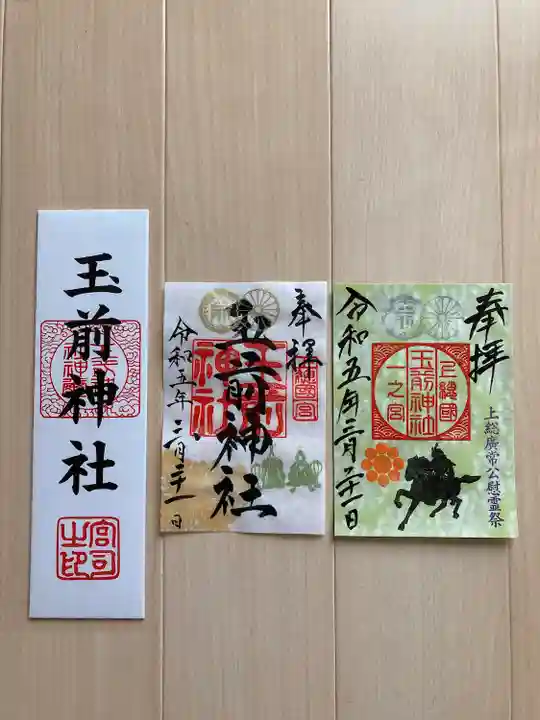 玉前神社
宮司
之印
奉拝
玉前神社
令和五年二月二十一日
奉拝
上総廣常公慰霊祭
上総國
玉前神社
一之宮
令和五年二月二十一日